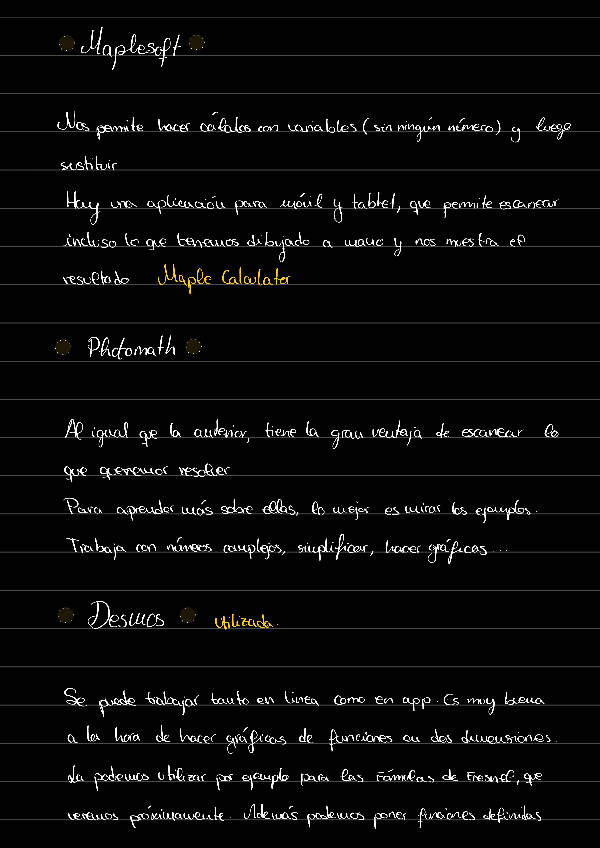 Maplesoft
Nos permite hacer cálculos con variables (sin ningún número) y luego
sustituir
Hay una aplicación para móvil y tablet, que permite escanear
incluso lo que tenemos dibujado a mano y nos muestra el
resultado Maple Calculator
Photomath
Al igual que la anterior, tiene la gran ventaja de escanear lo
que queremos resolver
Para aprender más sobre ellas, lo mejor es mirar los ejemplos.
Trabaja con números complejos, simplificar, hacer gráficas...
Desmos utilizada.
Se puede trabajar tanto en línea como en app. Es muy buena
a la hora de hacer gráficas de funciones en dos dimensiones.
La podemos utilizar por ejemplo para las Fórmulas de Fresnel, que
veremos próximamente. Además podemos poner funciones definidas